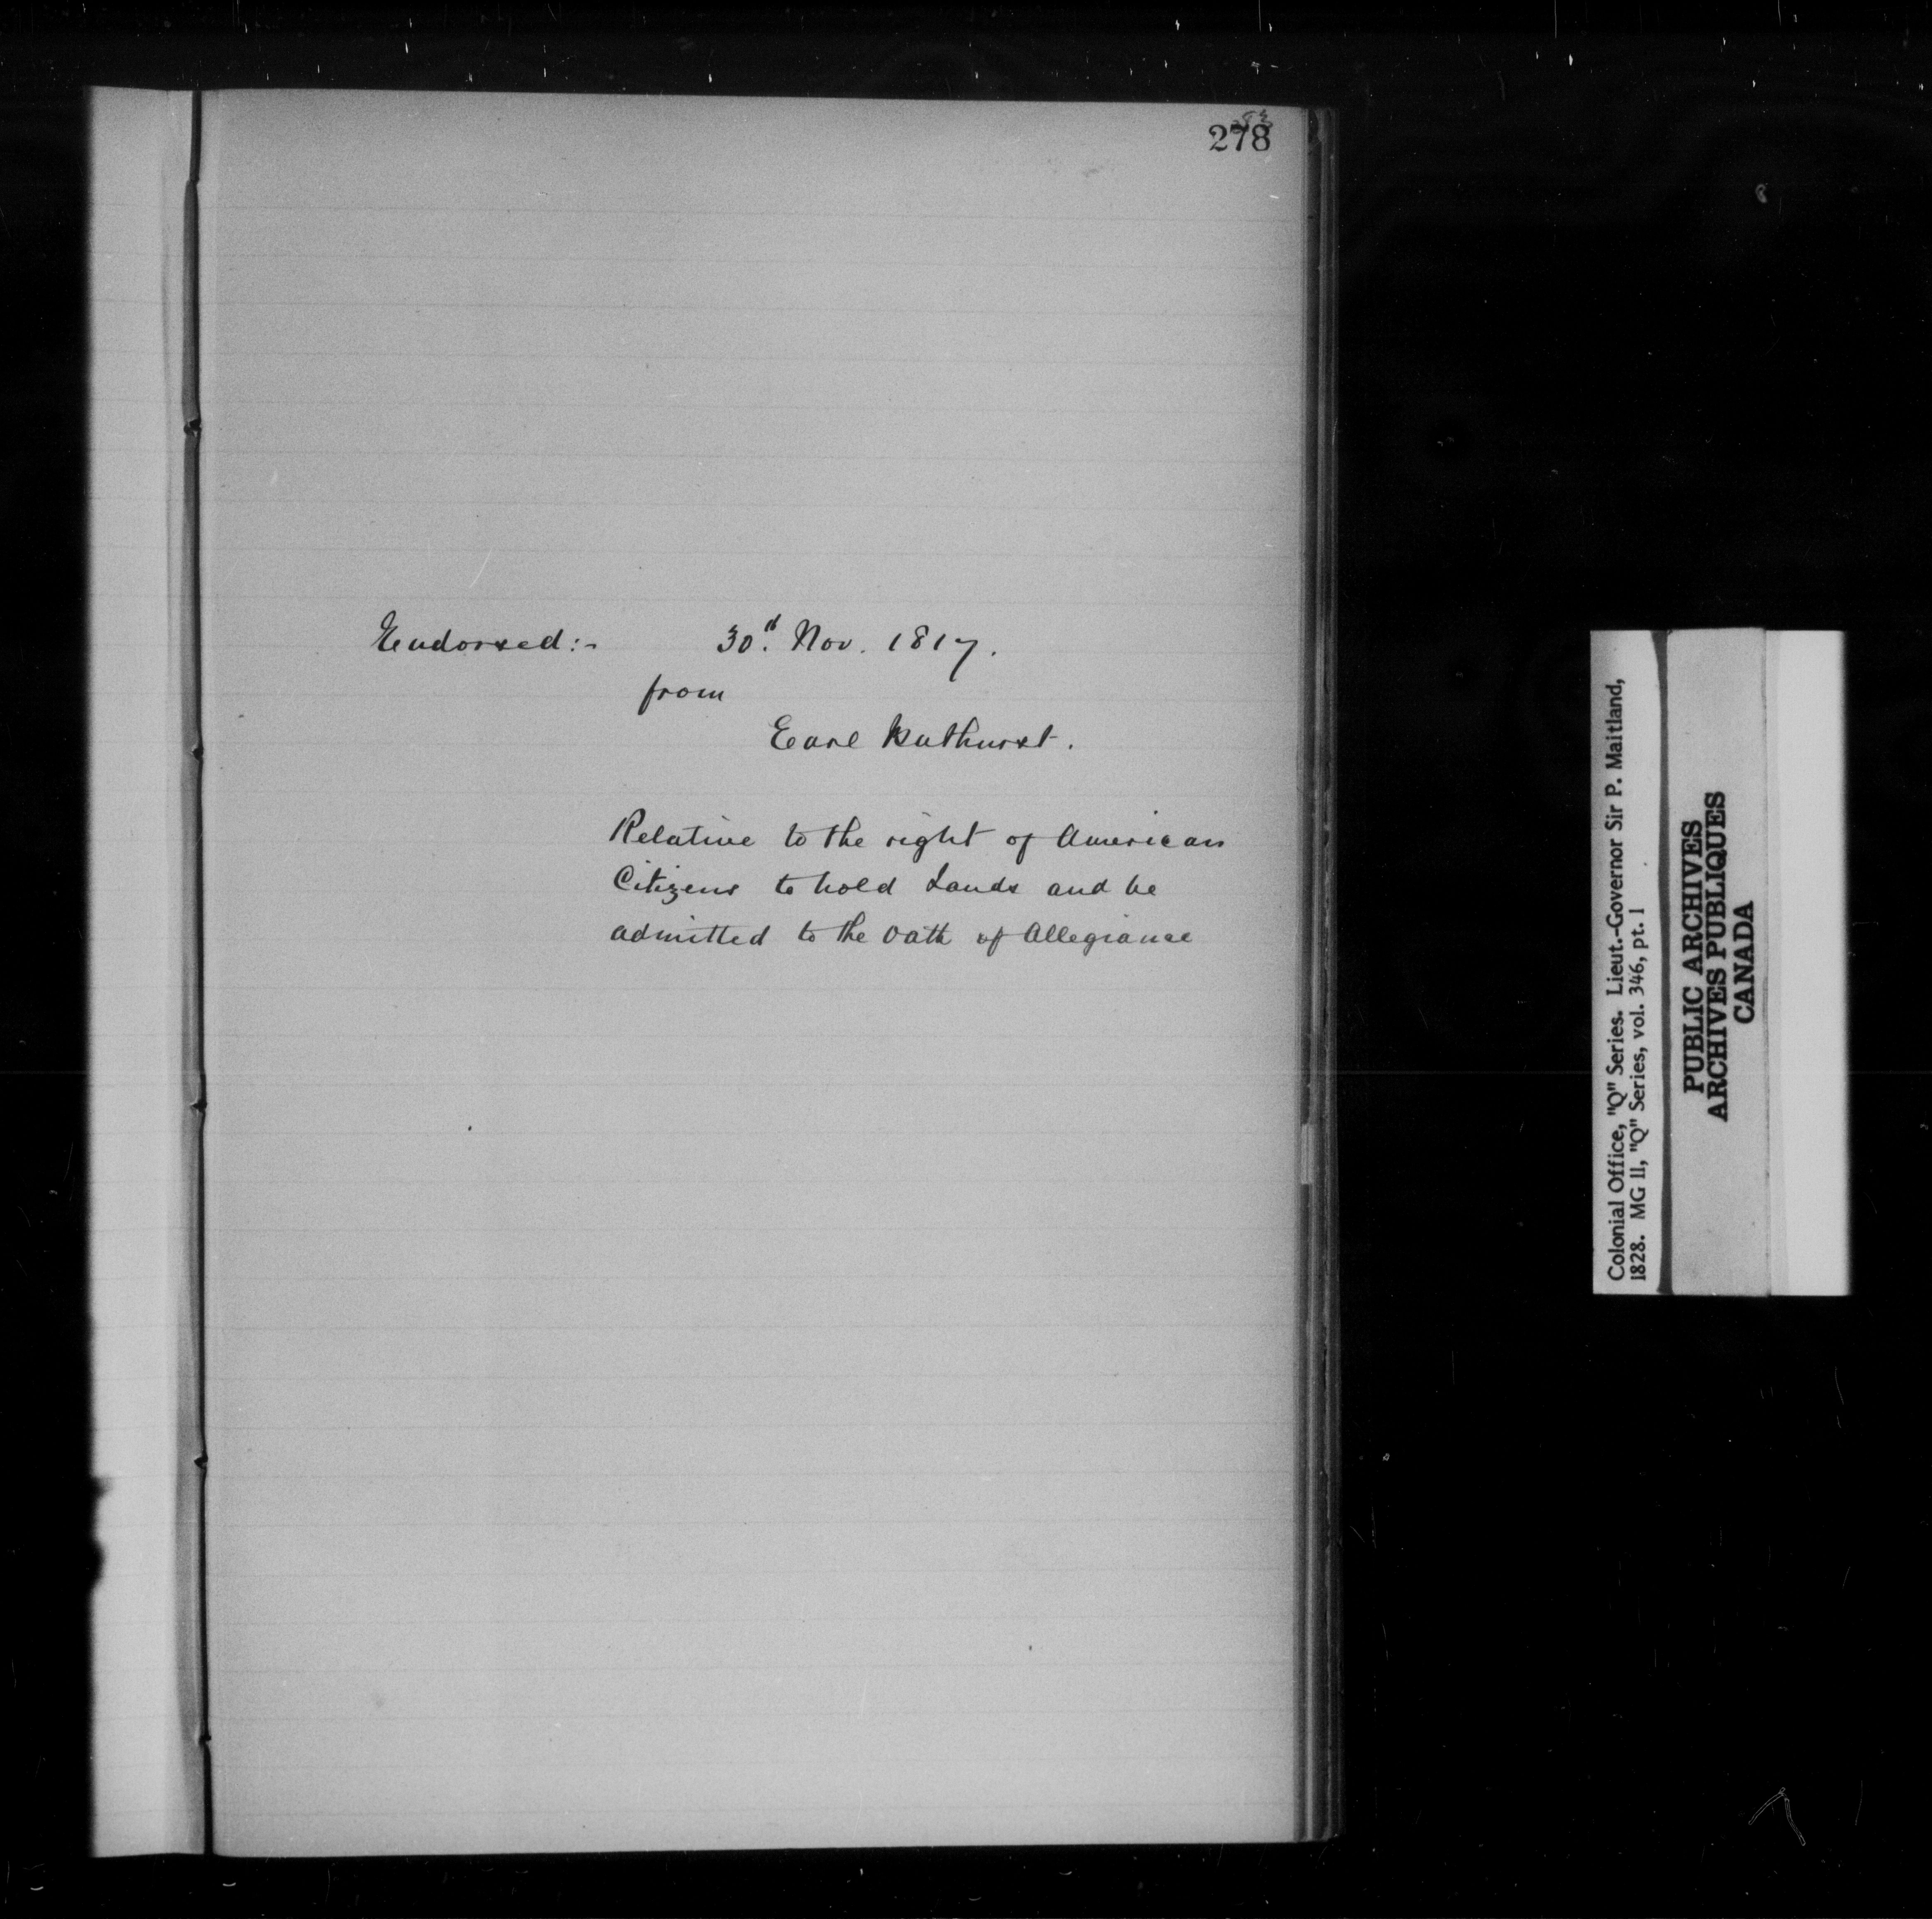 278
Endorsed:- 30.th Nov. 1817.
from
Earl Bathurst.
Relative to the right of American
Citizens to hold Lands and be
admitted to the Oath of Allegiance
Colonial Office, "Q" Series. Lieut.-Governor Sir P. Maitland,
1828. MG 11, "Q" Series, vol. 346, pt. 1
PUBLIC ARCHIVES
ARCHIVES PUBLIQUES
CANADA